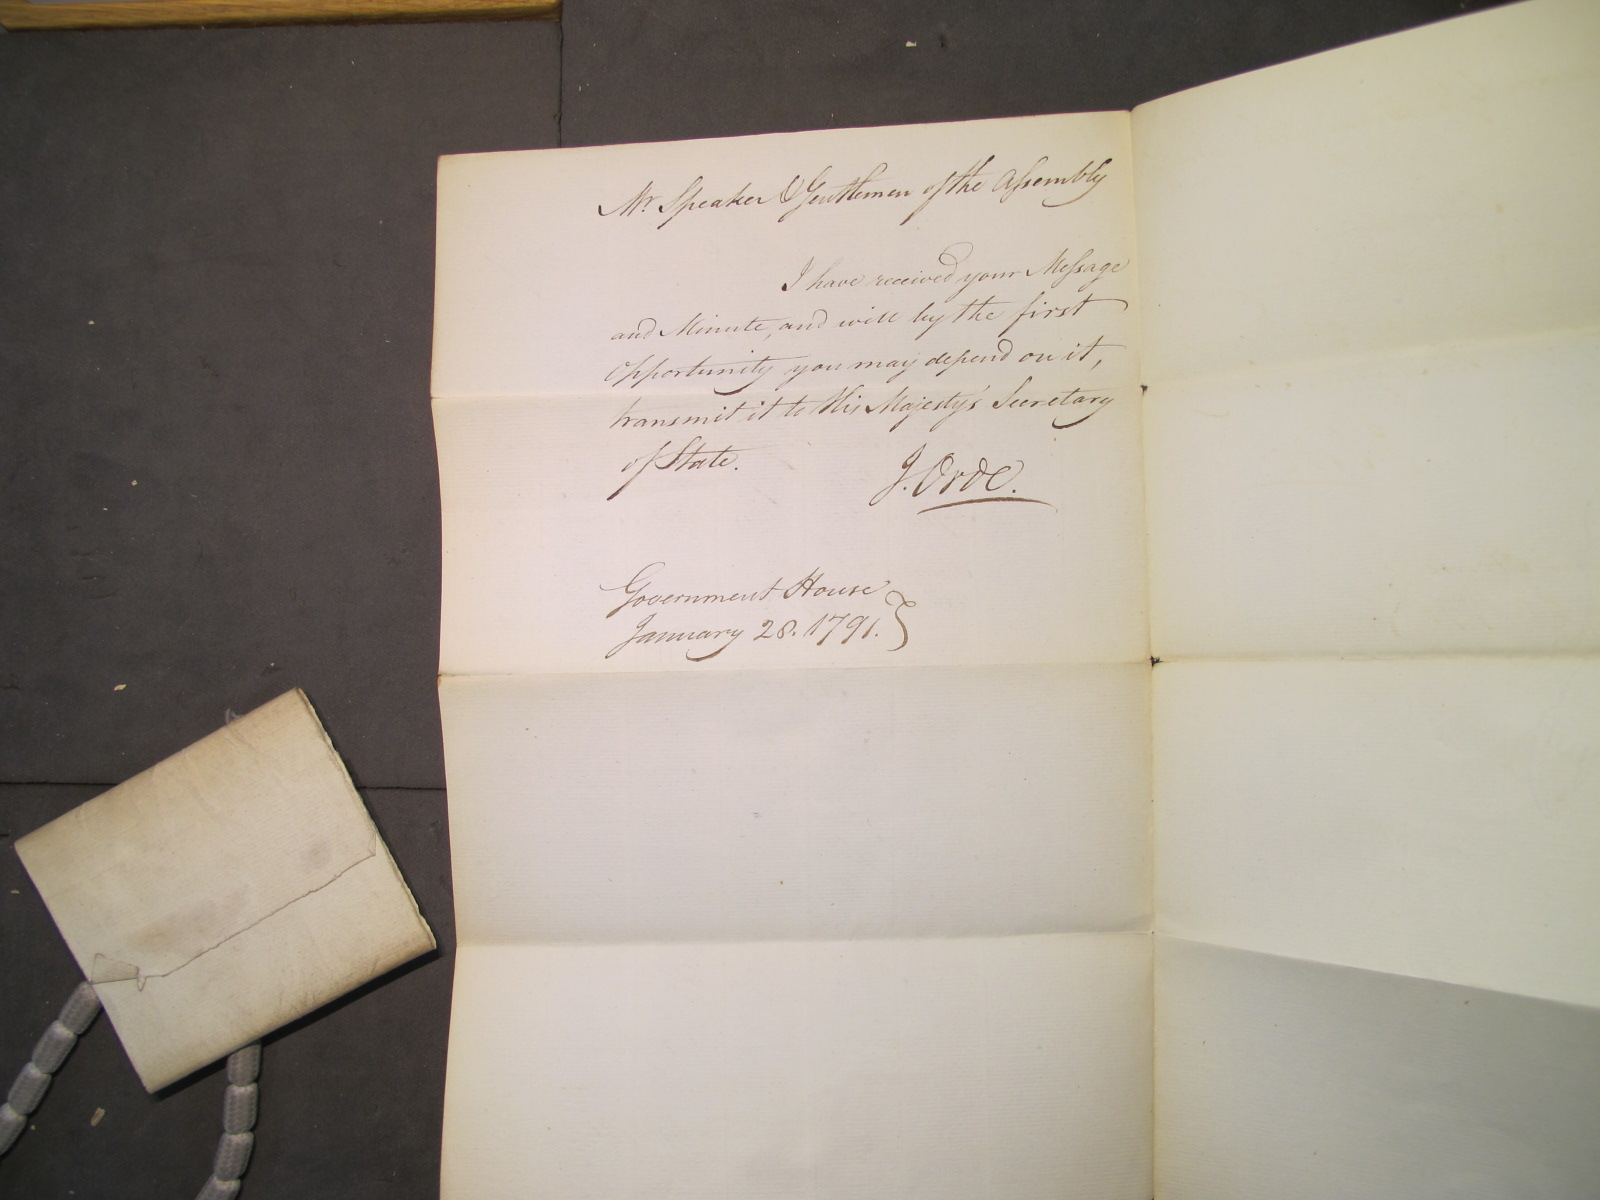 Mr. Speaker & Gentlemen of the Assembly
I have received your Message
and Minute, and will by the first
Opportunity you may depend on it,
transmit it to His Majesty's Secretary
of State.
J. Orde.
Government House
January 28. 1791.